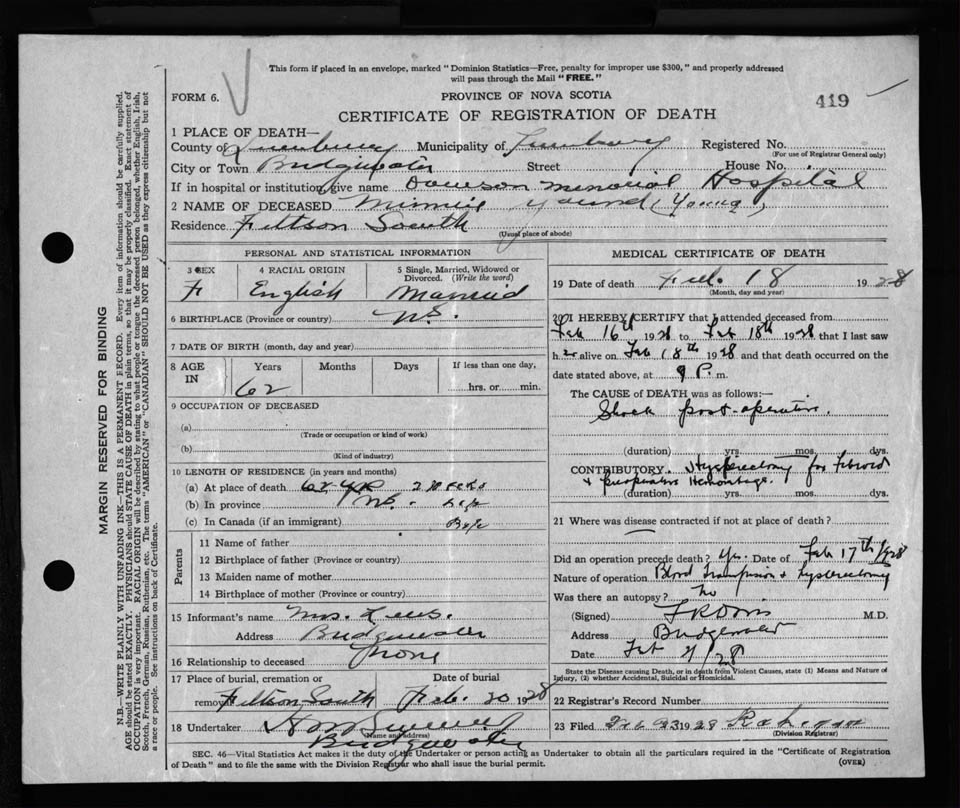 This form if placed in an envelope, marked "Dominion Statistics—Free, penalty for improper use $300," and properly addressed
will pass through the Mail "FREE."
FORM 6.
PROVINCE OF NOVA SCOTIA
419
CERTIFICATE OF REGISTRATION OF DEATH
1 PLACE OF DEATH—
County of Lunenburg Municipality of Lunenburg Registered No.
(For use of Registrar General only)
City or Town Bridgewater Street House No.
If in hospital or institution, give name Dawson Memorial Hospital
2 NAME OF DECEASED Minnie Yound, (Young)
Residence South
(Usual place of abode)
PERSONAL AND STATISTICAL INFORMATION
3 SEX
4 RACIAL ORIGIN
5 Single, Married, Widowed or
Divorced. (Write the word)
F English Married
6 BIRTHPLACE (Province or country) N.S.
7 DATE OF BIRTH (month, day and year)
8 AGE
IN
Years Months Days If less than one day,
62
hrs. or min.
9 OCCUPATION OF DECEASED
(a)
(Trade or occupation or kind of work)
(b)
(Kind of industry)
10 LENGTH OF RESIDENCE (in years and months)
(a) At place of death
(b) In province N.S.
(c) In Canada (if an immigrant)
Parents
11 Name of father
12 Birthplace of father (Province or country)
13 Maiden name of mother
14 Birthplace of mother (Province or country)
15 Informant's name Mrs.
Address Bridgewater
16 Relationship to deceased
17 Place of burial, cremation or Date of burial
removal South Feb. 20 1928
18 Undertaker
(Name and address)
Bridgewater
MEDICAL CERTIFICATE OF DEATH
19 Date of death Feb. 18 1928
(Month, day and year)
20 I HEREBY CERTIFY that I attended deceased from
Feb 16th 1928 to Feb 18th 1928 that I last saw
her alive on Feb 18th 1928 and that death occurred on the
date stated above, at 9 P. m.
The CAUSE OF DEATH was as follows:—
Shock post-operative.
(duration) yrs. mos. dys.
CONTRIBUTORY. Hysterectomy for Fibroid
+ Hemorrhage.
(duration) yrs. mos. dys.
21 Where was disease contracted if not at place of death?
Did an operation precede death? Yes. Date of Feb 17th/1928
Nature of operation Blood Transfusion + Hysterectomy
Was there an autopsy? No
(Signed) M.D.
Address Bridgewater
Date Feb 21/28
State the Disease causing Death, or in death from Violent Causes, state (1) Means and Nature of
Injury, (2) whether Accidental, Suicidal or Homicidal.
22 Registrar's Record Number
23 Filed Feb 23 1928
(Division Registrar)
SEC. 46—Vital Statistics Act makes it the duty of the Undertaker or person acting as Undertaker to obtain all the particulars required in the "Certificate of Registration
of Death" and to file the same with the Division Registrar who shall issue the burial permit.
(OVER)
MARGIN RESERVED FOR BINDING
N.B.—WRITE PLAINLY WITH UNFADING INK—THIS IS A PERMANENT RECORD. Every item of information should be carefully supplied.
AGE should be stated EXACTLY. PHYSICIANS should STATE CAUSE OF DEATH in plain terms, so that it may be properly classified. Exact statement of
OCCUPATION is very important. RACIAL ORIGIN will be described by stating to what people or tongue the deceased person belonged, whether English, Irish,
Scotch, French, German, Russian, Ruthenian, etc. The terms "AMERICAN" or "CANADIAN" SHOULD NOT BE USED as they express citizenship but not
a race or people. See instructions on back of Certificate.